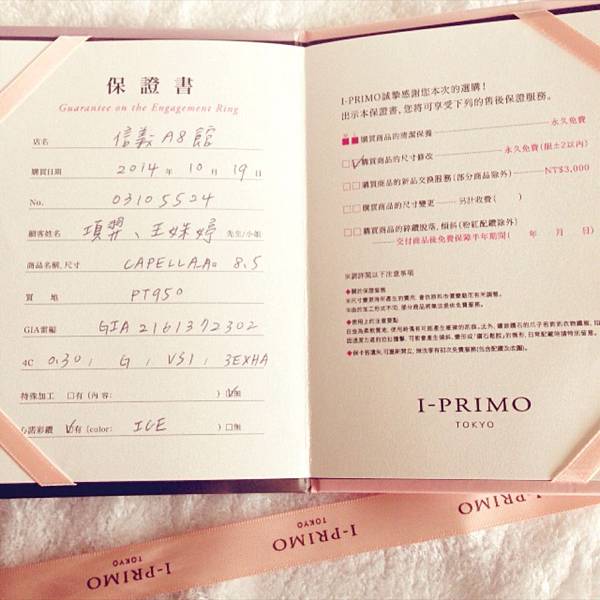 保證書
Guarantee on the Engagement Ring
店名 信義A8館
購買日期 2014年 10月 19日
No. 03105524
顧客姓名 項羿、王姝婷 先生/小姐
商品名稱,尺寸 CAPELLA.A. 8.5
質 地 PT950
GIA雷編 GIA 2161372302
4C 0.30, G, VS1, 3EXHA
特殊加工 □有(內容: )☑無
☑有 (color: ICE )□無
I-PRIMO誠摯感謝您本次的選購!
出示本保證書,您將可享受下列的售後保證服務。
購買商品的清潔保養 永久免費
購買商品的尺寸修改 永久免費(限±2以內)
□□購買商品的新品交換服務(部分商品除外) NT$3,000
□□購買商品的尺寸變更 另計收費( )
□□購買商品的碎鑽脫落,傾斜(粉紅配鑽除外)
交付商品後免費保障半年期間( 年 月 日)
※請詳閱以下注意事項
◆關於保證服務
◆使用上的注意要點
I-PRIMO
TOKYO
I-PRIMO
TOKYO
I-PRIMO
TOKYO
I-PRIMO
TOKYO